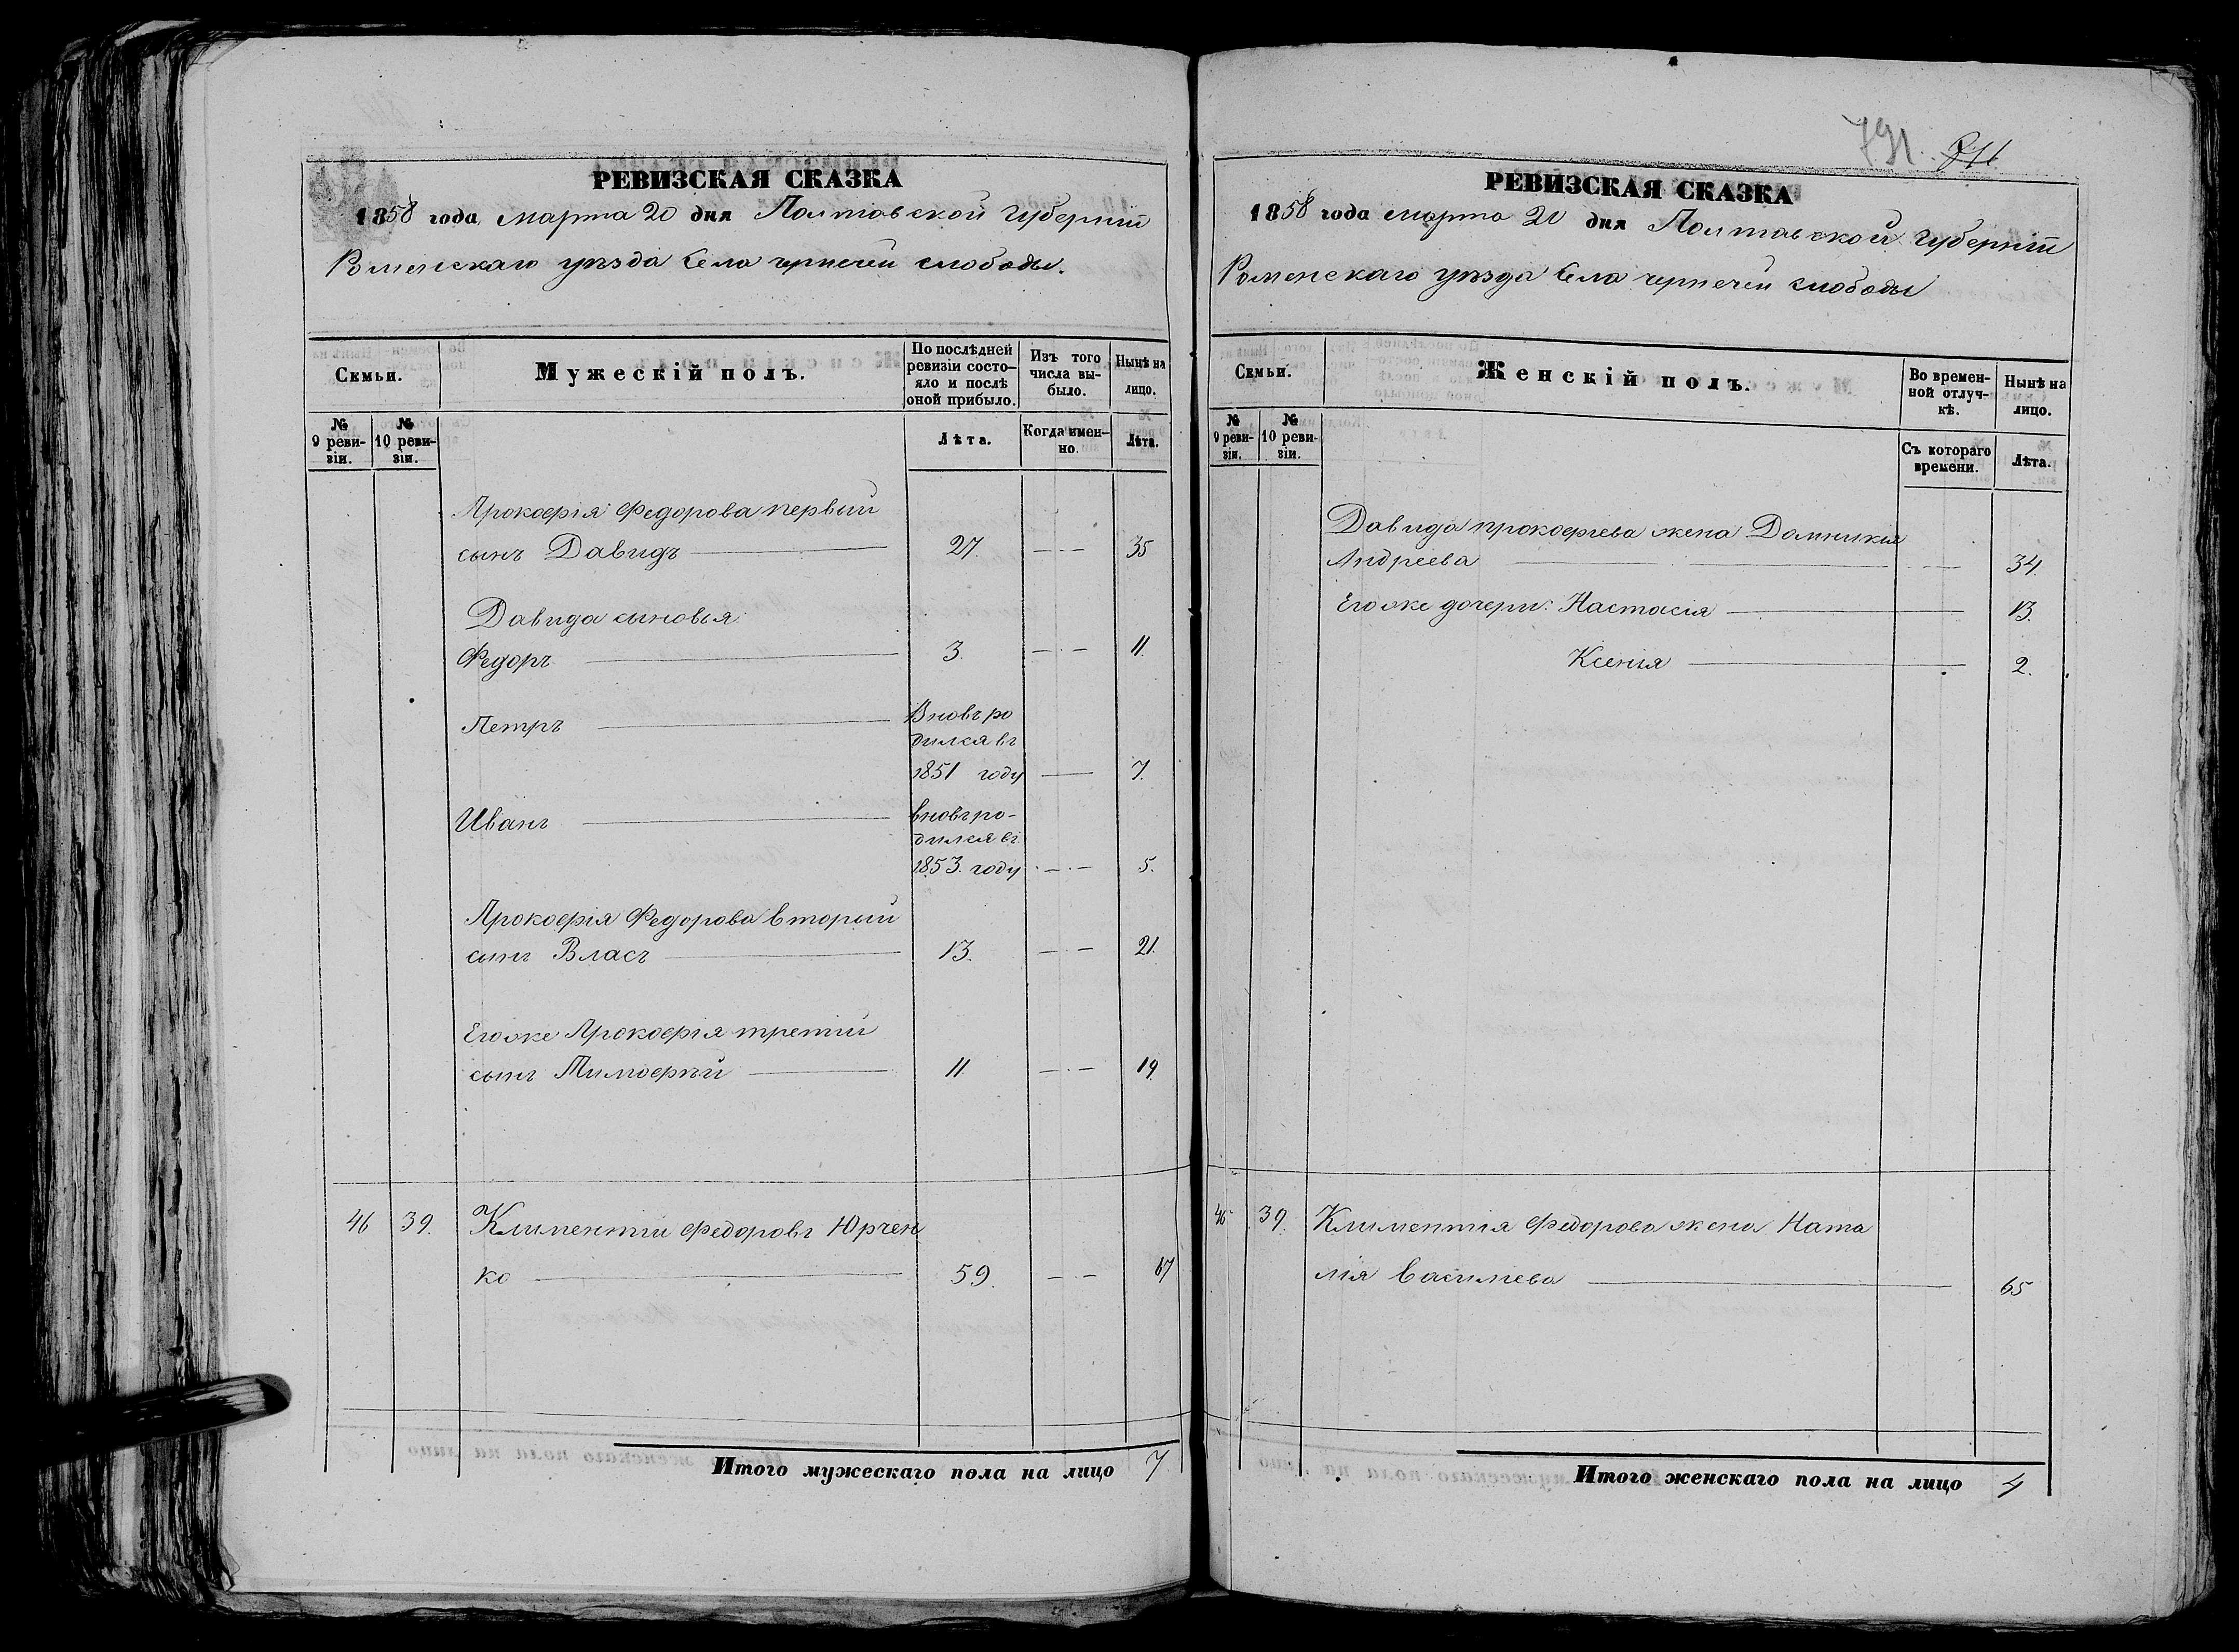 РЕВИЗСКАЯ СКАЗКА
1858 года марта 20 дня Полтавской губерніи
Роменскаго уѣзда села чернечей слободы.
Семьи.
Мужескій полъ.
По послѣдней ревизіи состояло и послѣ оной прибыло.
Изъ того числа выбыло.
Нынѣ на лицо.
№ 9 ревизіи.
№ 10 ревизіи.
Лѣта.
Когда именно.
Лѣта.
Прокофія Федорова первый
сынъ Давидъ 27. 35
Давида сыновья:
Федоръ 3. 11.
Петръ Вновь ро
дился въ
1851 году 7.
Иванъ вновь ро-
дился въ
1853. году 5.
Прокофія Федорова вторый
сынъ Власъ 13. 21.
Егоже Прокофія третій
сынъ Тимофѣй 11 19.
46 39. Климентій Федоровъ Юрчен
ко 59. 67
Итого мужескаго пола на лицо 7
791. 776
РЕВИЗСКАЯ СКАЗКА
1858 года марта 20 дня Полтавской губерніи
Роменскаго уѣзда села чернечей слободы
Семьи.
Женскій полъ.
Во временной отлучкѣ.
Нынѣ на лицо.
№ 9 ревизіи.
№ 10 ревизіи.
Съ котораго времени.
Лѣта.
Давида прокофіева жена Домникія
Андреева 34.
Егоже дочери: Настасія 13.
Ксенія 2.
46 39. Климентія Федорова жена Ната
лія Василиева 65
Итого женскаго пола на лицо 4